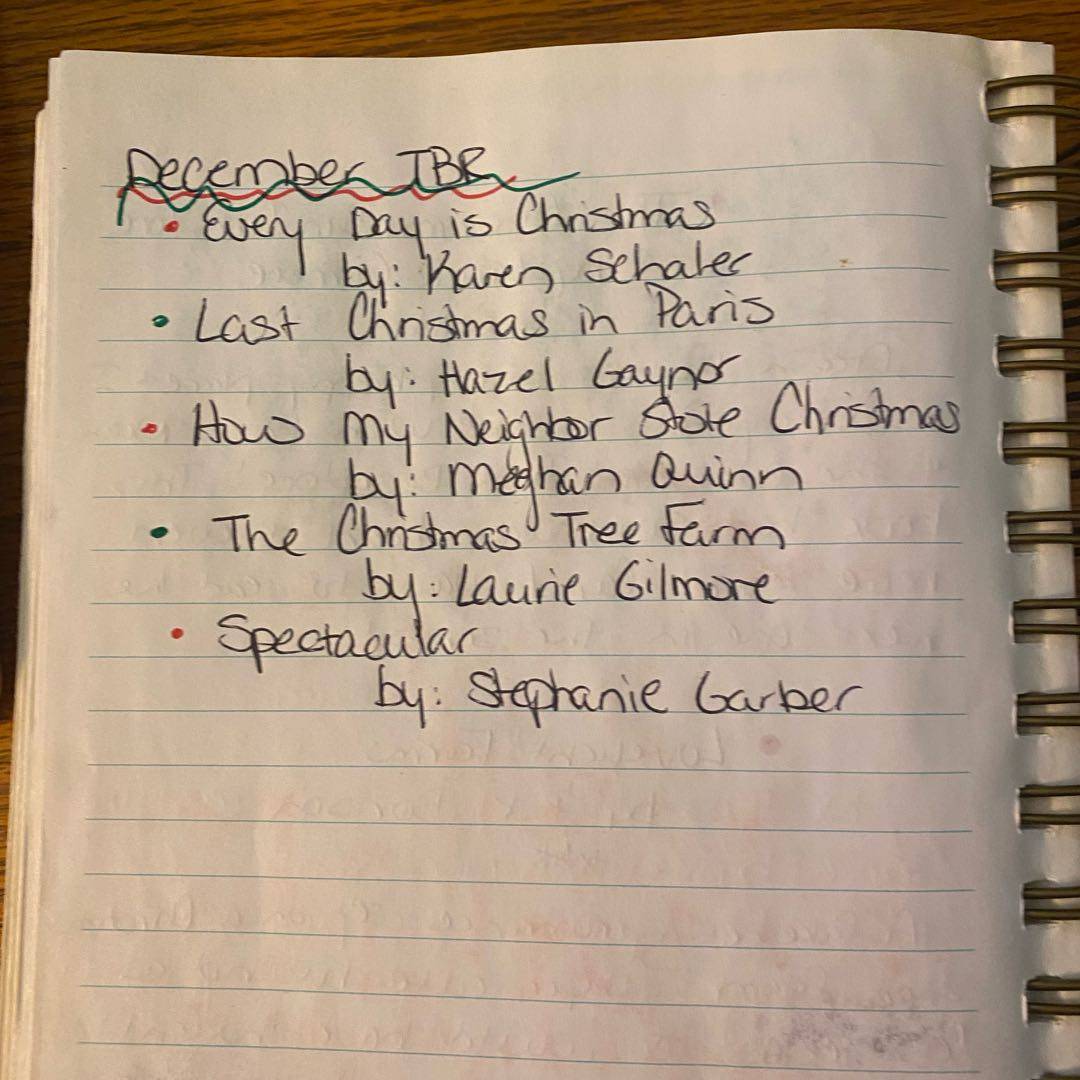 December TBR
• Every Day is Christmas
by: Karen Schaler
• Last Christmas in Paris
by: Hazel Gaynor
• How My Neighbor Stole Christmas
by: Meghan Quinn
• The Christmas Tree Farm
by: Laurie Gilmore
• Spectacular
by: Stephanie Garber